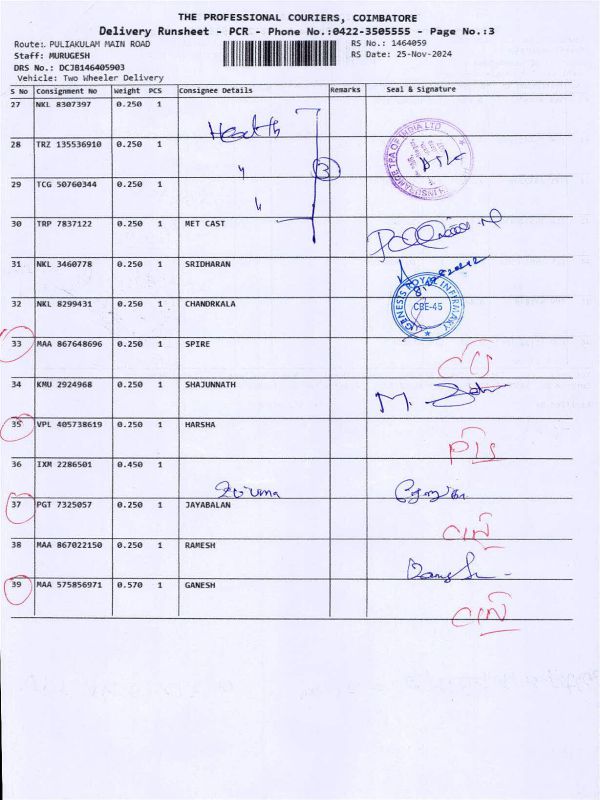 THE PROFESSIONAL COURIERS, COIMBATORE
Delivery Runsheet - PCR - Phone No.:0422-3505555 - Page No.:3
Route: PULIAKULAM MAIN ROAD RS No.: 1464059
Staff: MURUGESH RS Date: 25-Nov-2024
DRS No.: DCJB146405903
Vehicle: Two Wheeler Delivery
S No Consignment No Weight PCS Consignee Details Remarks Seal & Signature
27 NKL 8307397 0.250 1
Health
28 TRZ 135536910 0.250 1
" 3
29 TCG 50760344 0.250 1
"
30 TRP 7837122 0.250 1 MET CAST
31 NKL 3460778 0.250 1 SRIDHARAN
32 NKL 8299431 0.250 1 CHANDRKALA
GENESIS ROYAL INFIRMARY
CBE-45
33 MAA 867648696 0.250 1 SPIRE
34 KMU 2924968 0.250 1 SHAJUNNATH
35 VPL 405738619 0.250 1 HARSHA
36 IXM 2286501 0.450 1
37 PGT 7325057 0.250 1 JAYABALAN
38 MAA 867022150 0.250 1 RAMESH
39 MAA 575856971 0.570 1 GANESH